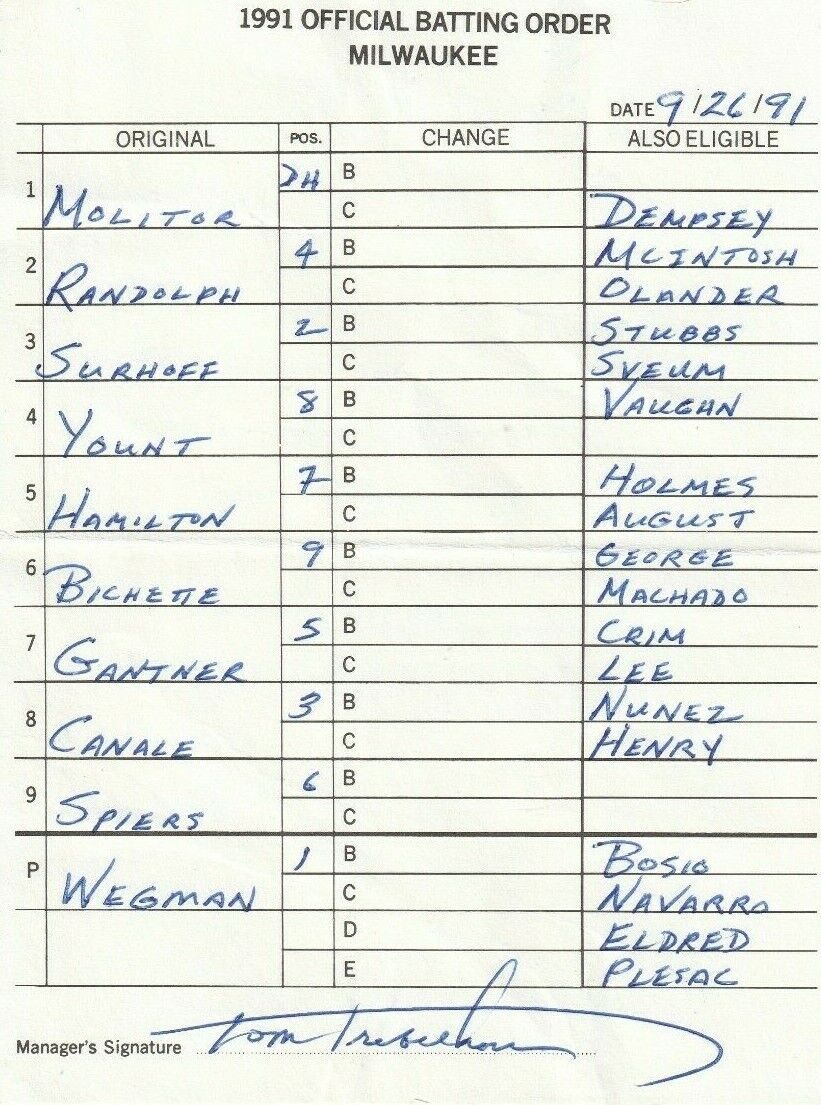 1991 OFFICIAL BATTING ORDER
MILWAUKEE
DATE 9/26/91
ORIGINAL POS. CHANGE ALSO ELIGIBLE
1 MOLITOR DH B
C DEMPSEY
2 RANDOLPH 4 B MCINTOSH
C OLANDER
3 SURHOFF 2 B STUBBS
C SVEUM
4 YOUNT 8 B VAUGHN
C
5 HAMILTON 7 B HOLMES
C AUGUST
6 BICHETTE 9 B GEORGE
C MACHADO
7 GANTNER 5 B CRIM
C LEE
8 CANALE 3 B NUNEZ
C HENRY
9 SPIERS 6 B
C
P WEGMAN 1 B BOSIO
C NAVARRO
D ELDRED
E PLESAC
Manager's Signature Tom Trebelhorn